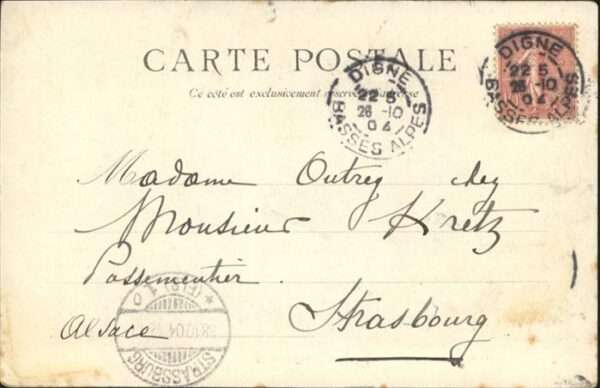 CARTE POSTALE
Ce côté est exclusivement réservé à l'adresse
DIGNE
22 5
26 -10
04
BASSES ALPES
DIGNE
22 5
26 -10
04
BASSES ALPES
Madame Outrey chez
Monsieur Kretz
Passementier
Strasbourg
Alsace
STRASSBURG
(ELS) 1